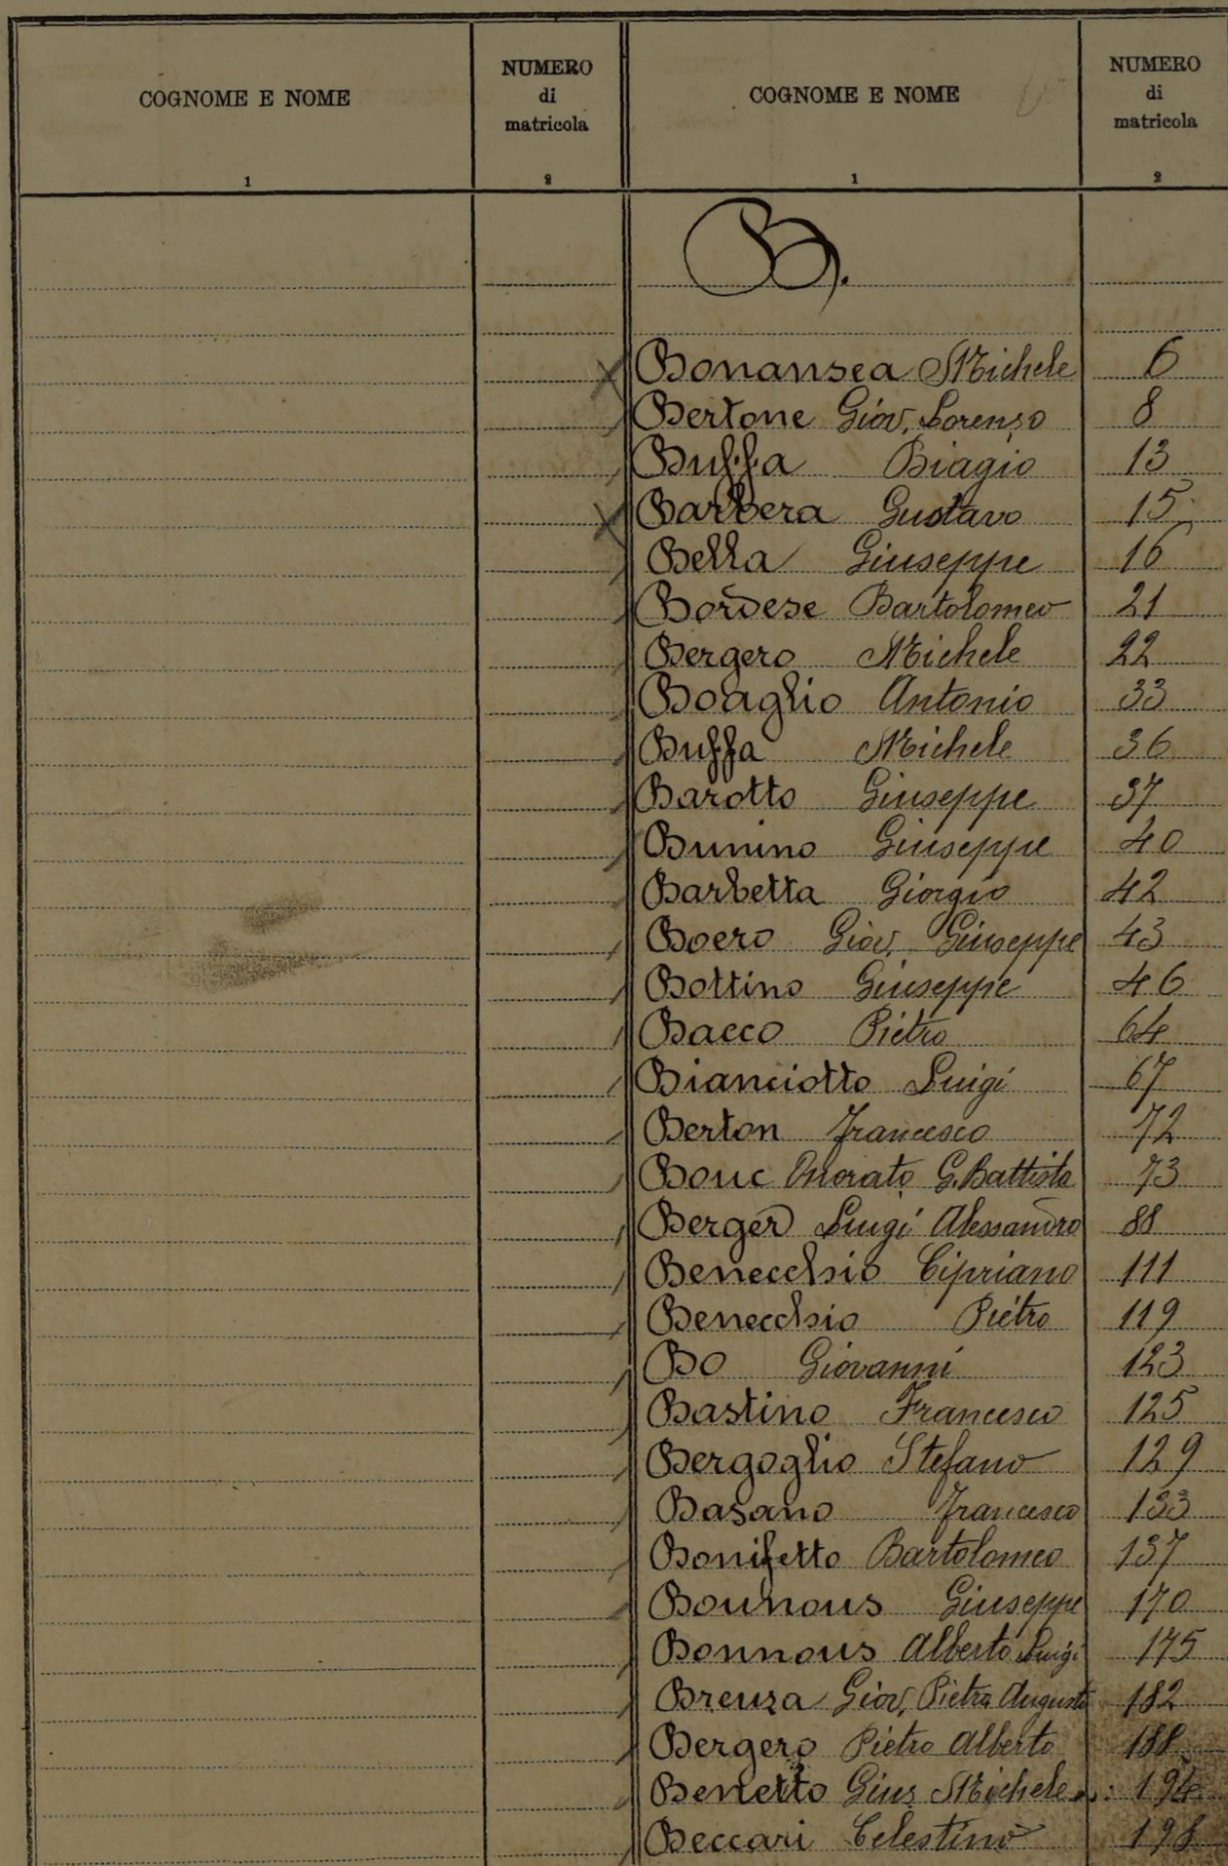 COGNOME E NOME
NUMERO
di
matricola
COGNOME E NOME
NUMERO
di
matricola
1 2 1 2
B.
Bonansea Michele 6
Bertone Giov. Lorenzo 8
Buffa Biagio 13
Barbera Gustavo 15
Bella Giuseppe 16
Bordese Bartolomeo 21
Bergero Michele 22
Boaglio Antonio 33
Buffa Michele 36
Barotto Giuseppe 37
Bunino Giuseppe 40
Barbetta Giorgio 42
Boero Giov. Giuseppe 43
Bottino Giuseppe 46
Bacco Pietro 64
Bianciotto Luigi 67
Berton Francesco 72
Bouc Onorato G. Battista 73
Berger Luigi Alessandro 88
Benecchio Cipriano 111
Benecchio Pietro 119
Bo Giovanni 123
Bastino Francesco 125
Bergoglio Stefano 129
Basano Francesco 133
Bonifetto Bartolomeo 137
Bounous Giuseppe 170
Bonnous Alberto Luigi 175
Breuza Giov. Pietro Augusto 182
Bergero Pietro Alberto 188
Benetto Gius. Michele 194
Beccari Celestino 198